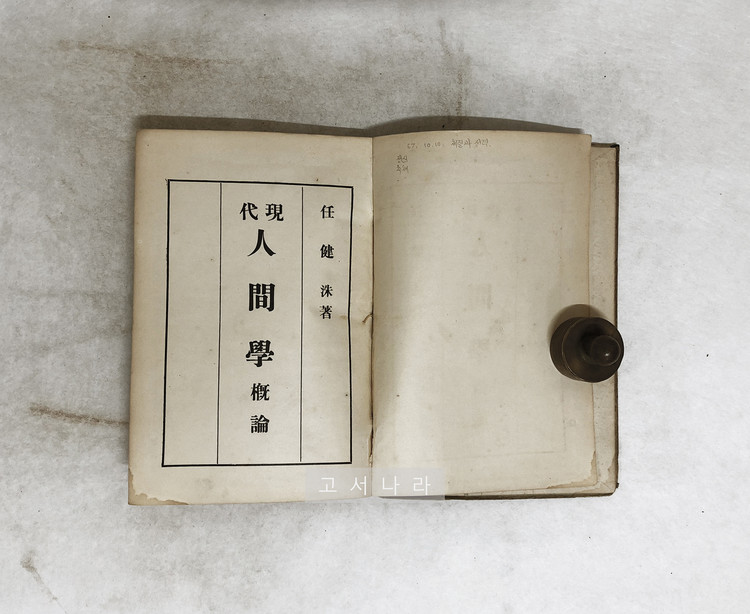 任健洙著
現代
人間學
概論
고서나라